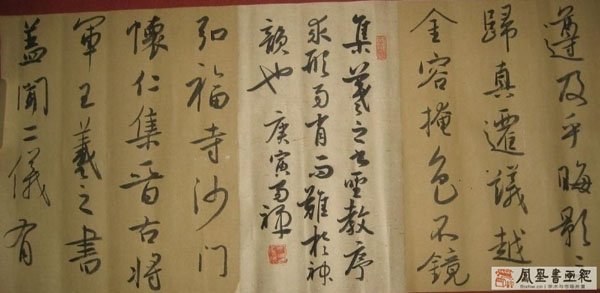 遵及乎晦影
歸真遷議越
金容掩色不鏡
集羲之书聖教序
求形易肖而難於神
韻也 庚寅
弘福寺沙门
懷仁集晉右將
軍王羲之書
蓋聞二儀有